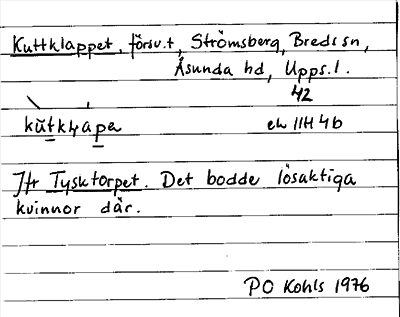 Kuttklappet, försv.t, Strömsberg, Breds sn,
Åsunda hd, Upps.l.
42
ek 11H 4b
Jfr Tysktorpet. Det bodde lösaktiga
kvinnor där.
PO Kohls 1976